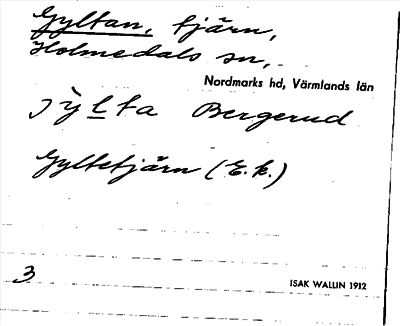 Gyltan, tjärn,
Holmedals sn,
Nordmarks hd, Värmlands län
jylta Bergerud
Gyltetjärn (E.k.)
3
ISAK WALLIN 1912